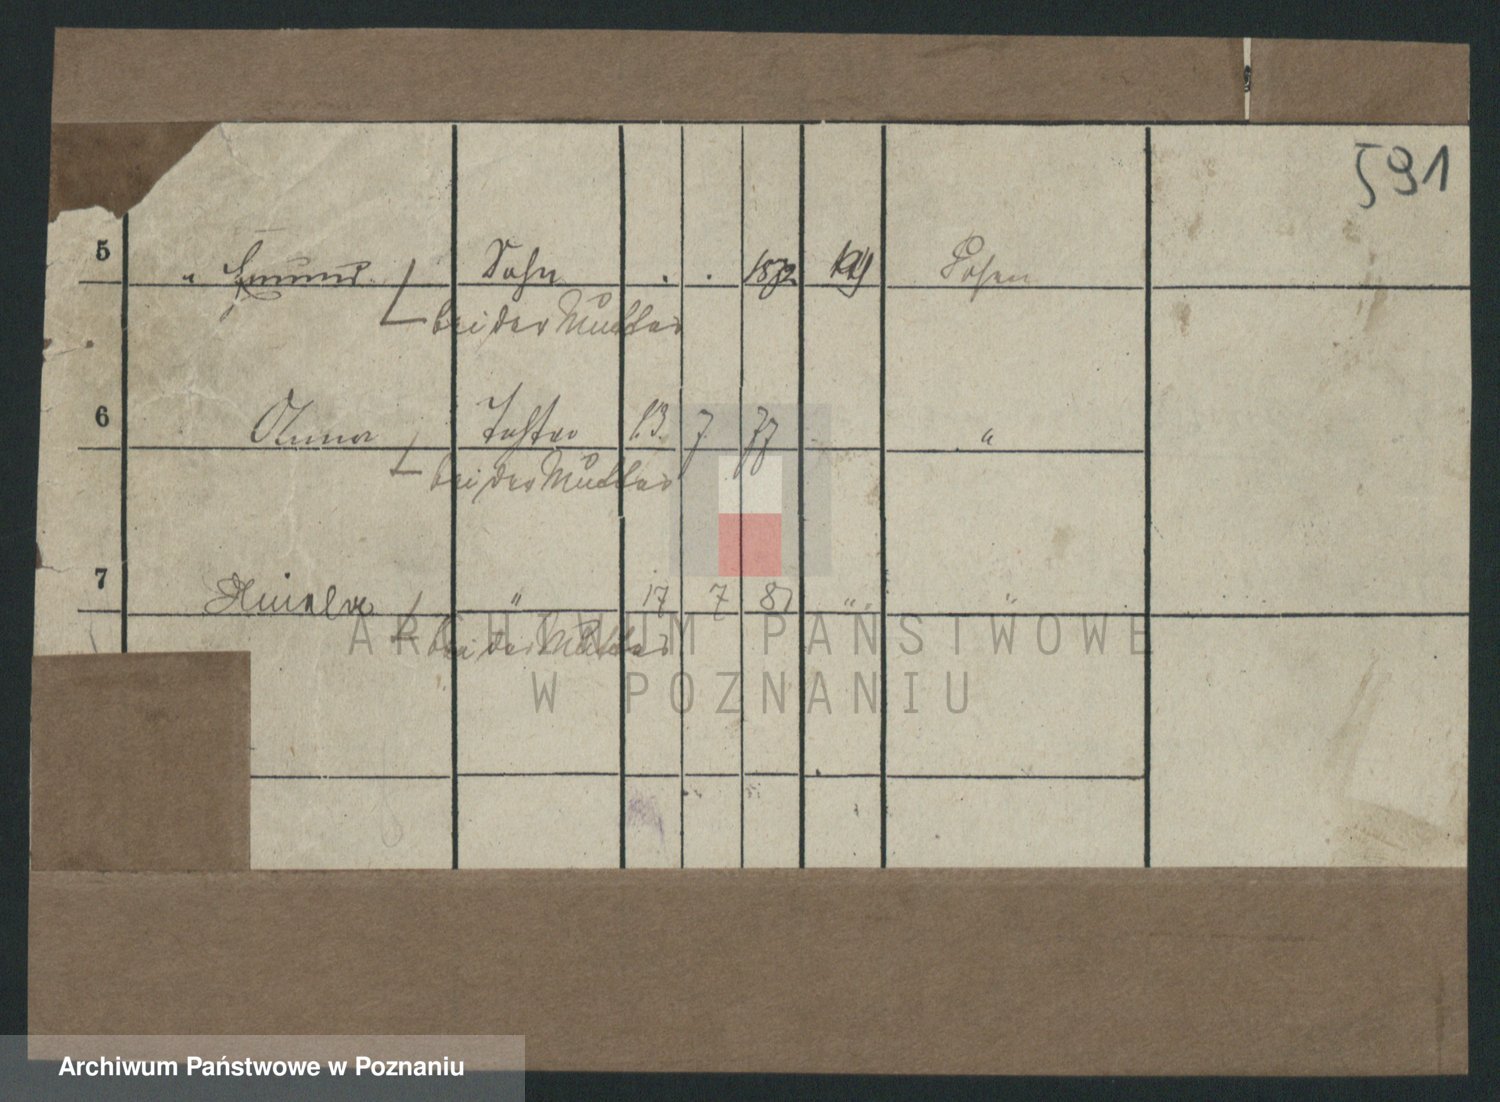 591
5 " Edmund Sohn . . 1872 kath Posen
bei der Mutter
6 Anna Tochter 13. 7. 77 "
bei der Mutter
7 " 17 7 81 " "
bei der Mutter
ARCHIWUM PAŃSTWOWE
W POZNANIU
Archiwum Państwowe w Poznaniu